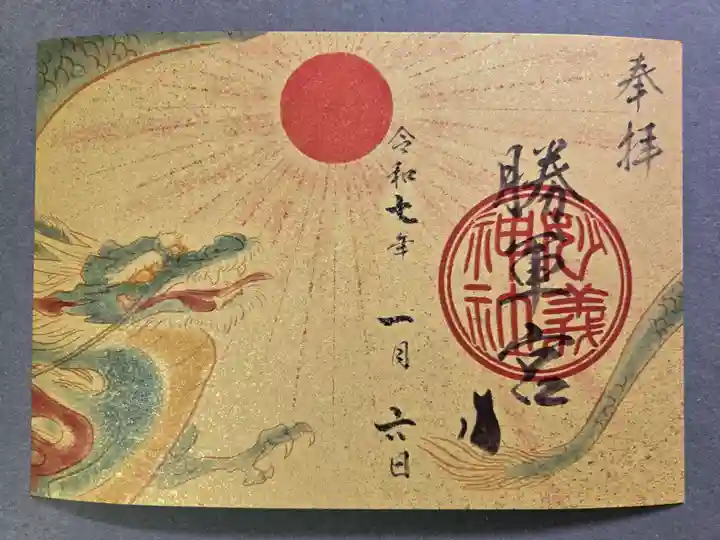 奉拝
勝軍宮
妙義神社
令和七年 一月 六日